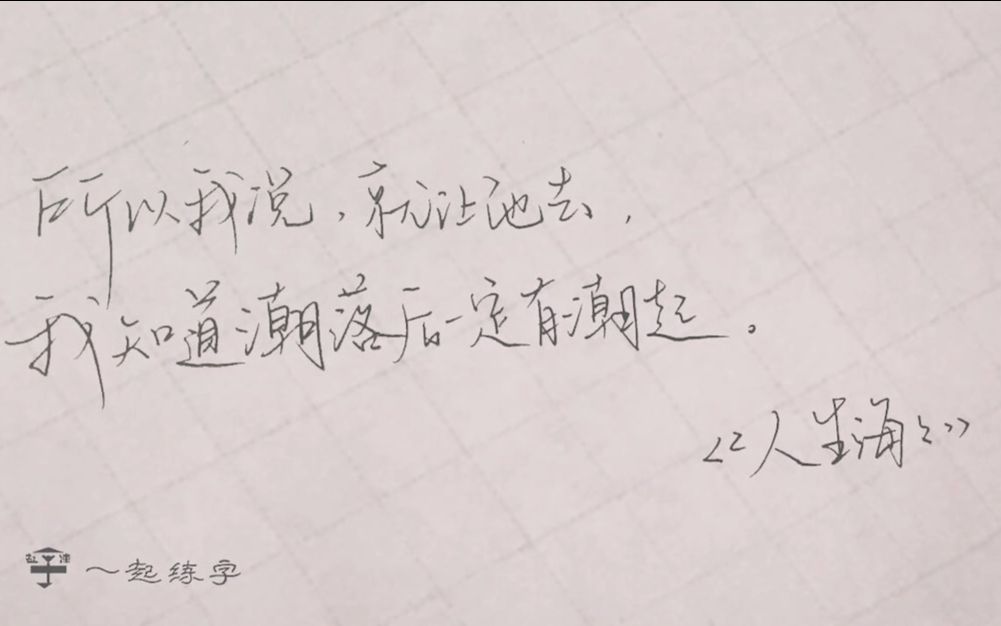 所以我说，就让池去，
我知道潮落后一定有潮起。
《人生海》
一起练字